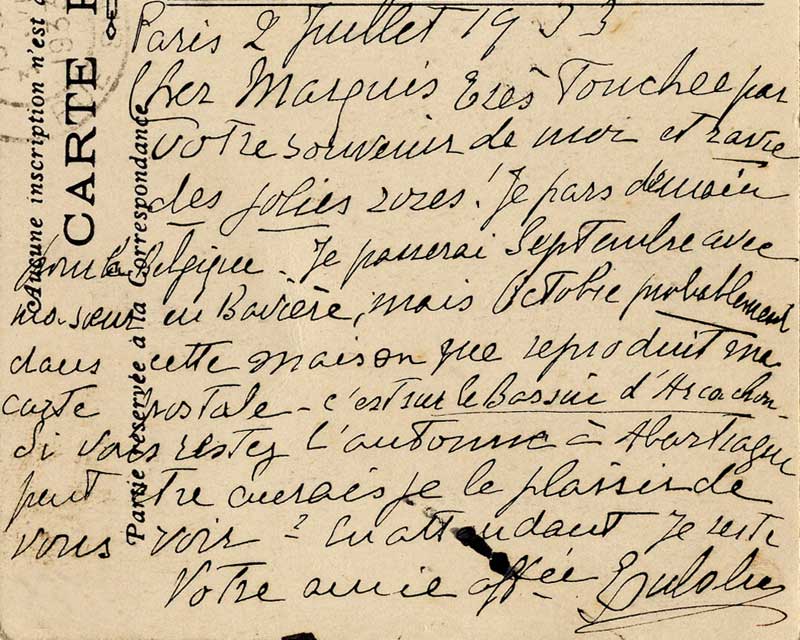 Aucune inscription n'est
CARTE P
Partie réservée à la Correspondance
Paris 2 Juillet 1933
Cher Marquis Très Touchée par
votre souvenir de moi et ravie
des jolies roses! Je pars demain
pour la Belgique. Je passerai Septembre avec
ma sœur en Bavière, mais Octobre probablement
dans cette maison que reproduit ma
carte postale - c'est sur le Bassin d'Arcachon-
Si vous restez l'automne à Abartiague
peut être aurais je le plaisir de
vous voir? En attendant Je reste
Votre amie affée